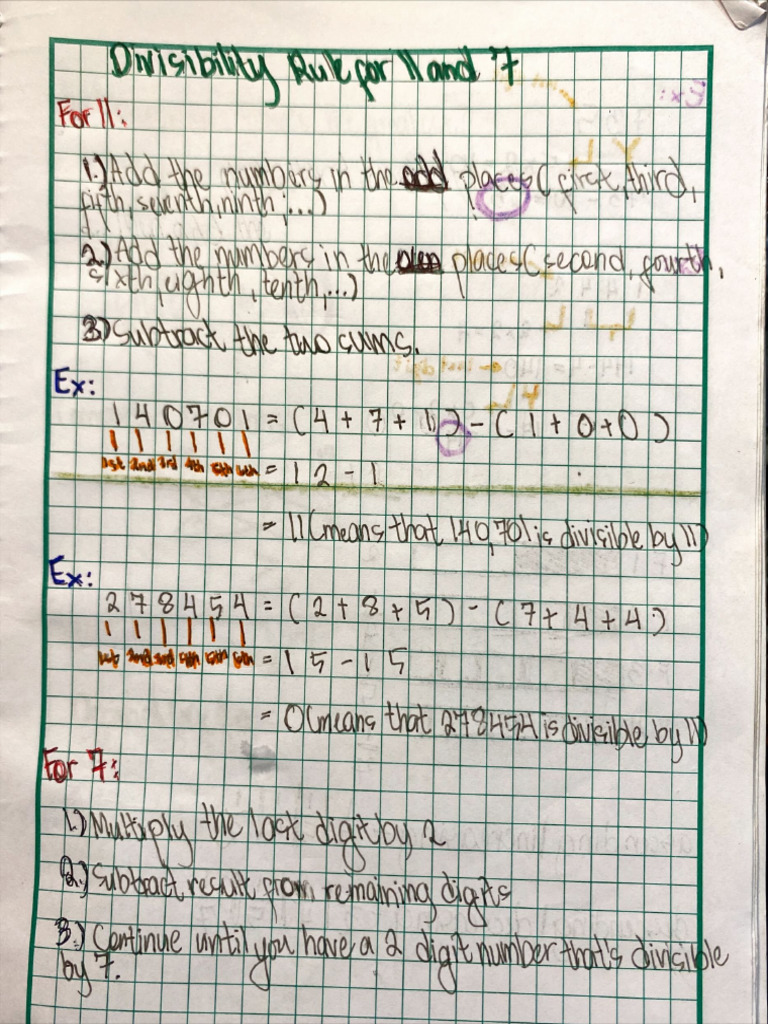 Divisibility Rule for 11 and 7
For 11:
1.) Add the numbers in the odd places ( first, third,
fifth, seventh, ninth, ...)
2.) Add the numbers in the even places ( second, fourth,
sixth, eighth, tenth, ...)
3.) Subtract the two sums.
Ex:
1 4 0 7 0 1 = ( 4 + 7 + 1 ) - ( 1 + 0 + 0 )
1st 2nd 3rd 4th 5th 6th = 1 2 - 1
= 11 (means that 140,701 is divisible by 11)
Ex:
2 7 8 4 5 4 = ( 2 + 8 + 5 ) - ( 7 + 4 + 4 )
1st 2nd 3rd 4th 5th 6th = 1 5 - 1 5
= 0 (means that 278454 is divisible by 11)
For 7:
1.) Multiply the last digit by 2
2.) Subtract result from remaining digits
3.) Continue until you have a 2 digit number that's divisible
by 7.